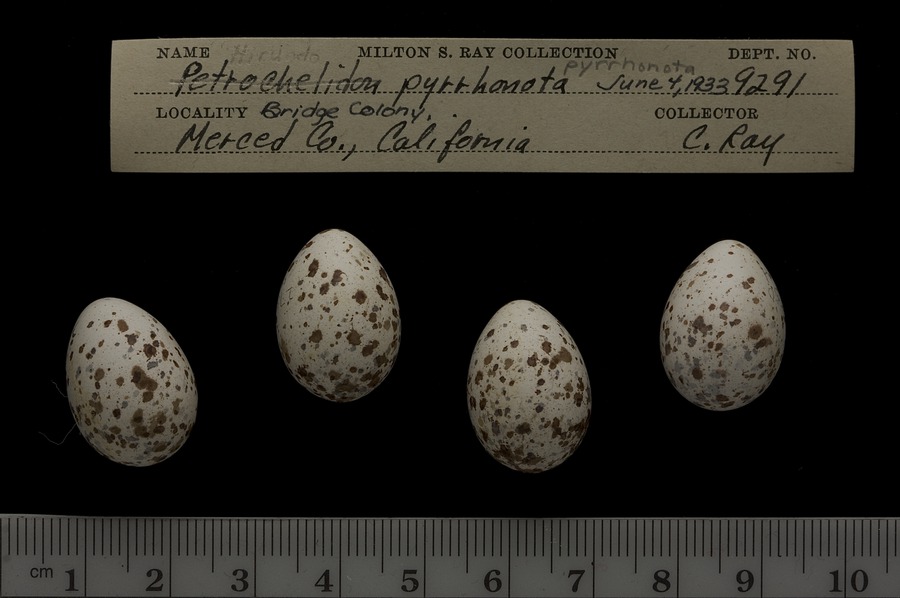 NAME Hirundo MILTON S. RAY COLLECTION DEPT. NO.
pyrrhonota
Petrochelidon pyrrhonota June 4, 1933 9291
LOCALITY Bridge Colony. COLLECTOR
Merced Co., California C. Ray
cm 1 2 3 4 5 6 7 8 9 10